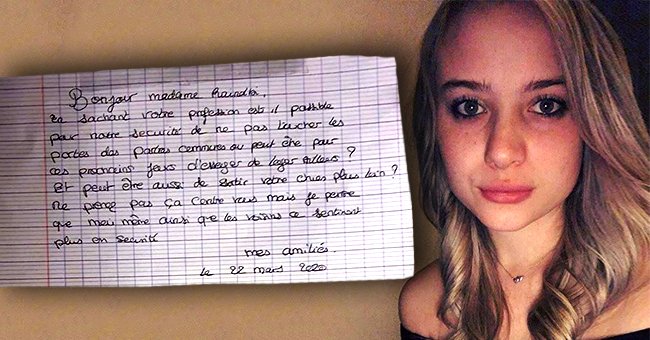 Bonjour madame
en sachant votre profession est-il possible
pour notre securité de ne pas toucher les
portes des parties communes ou peut être pour
ces prochains jours d'essayer de loger ailleurs ?
Et peut être aussi de sortir votre chien plus loin ?
ne prenez pas ça contre vous mais je pense
que moi même ainsi que les voisins ce sentiront
plus en securité
mes amitiés.
le 22 mars 2020